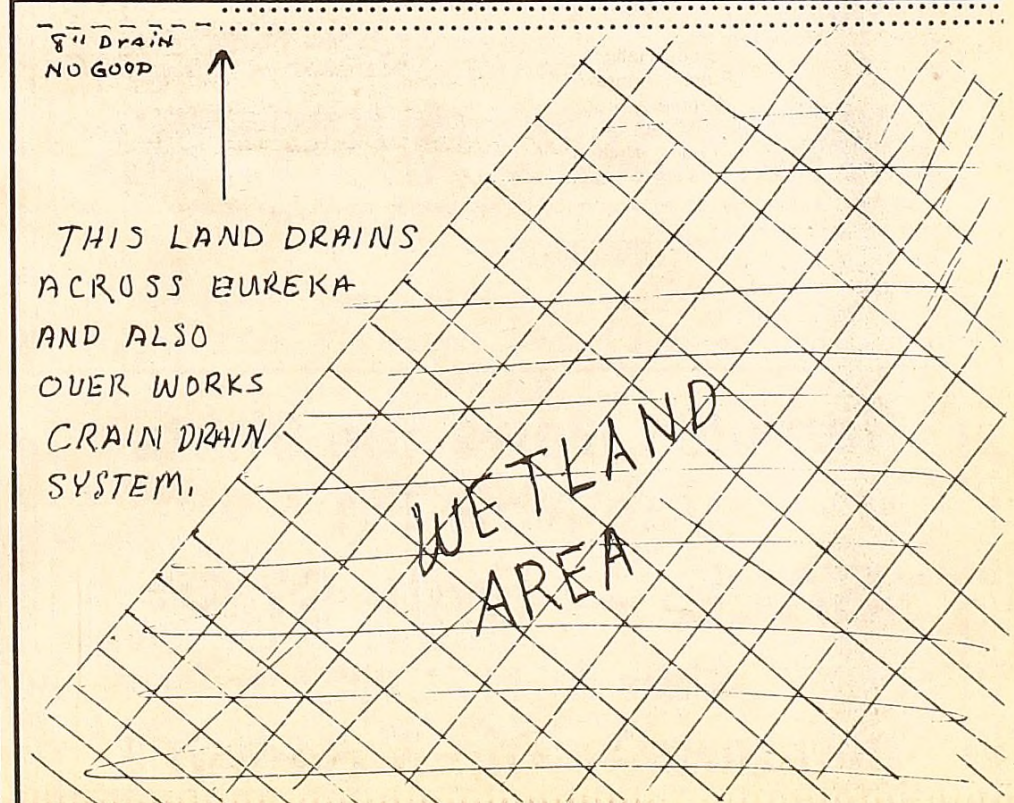 8" DRAIN
NO GOOD
THIS LAND DRAINS
ACROSS EUREKA
AND ALSO
OVER WORKS
CRAIN DRAIN
SYSTEM.
WETLAND
AREA